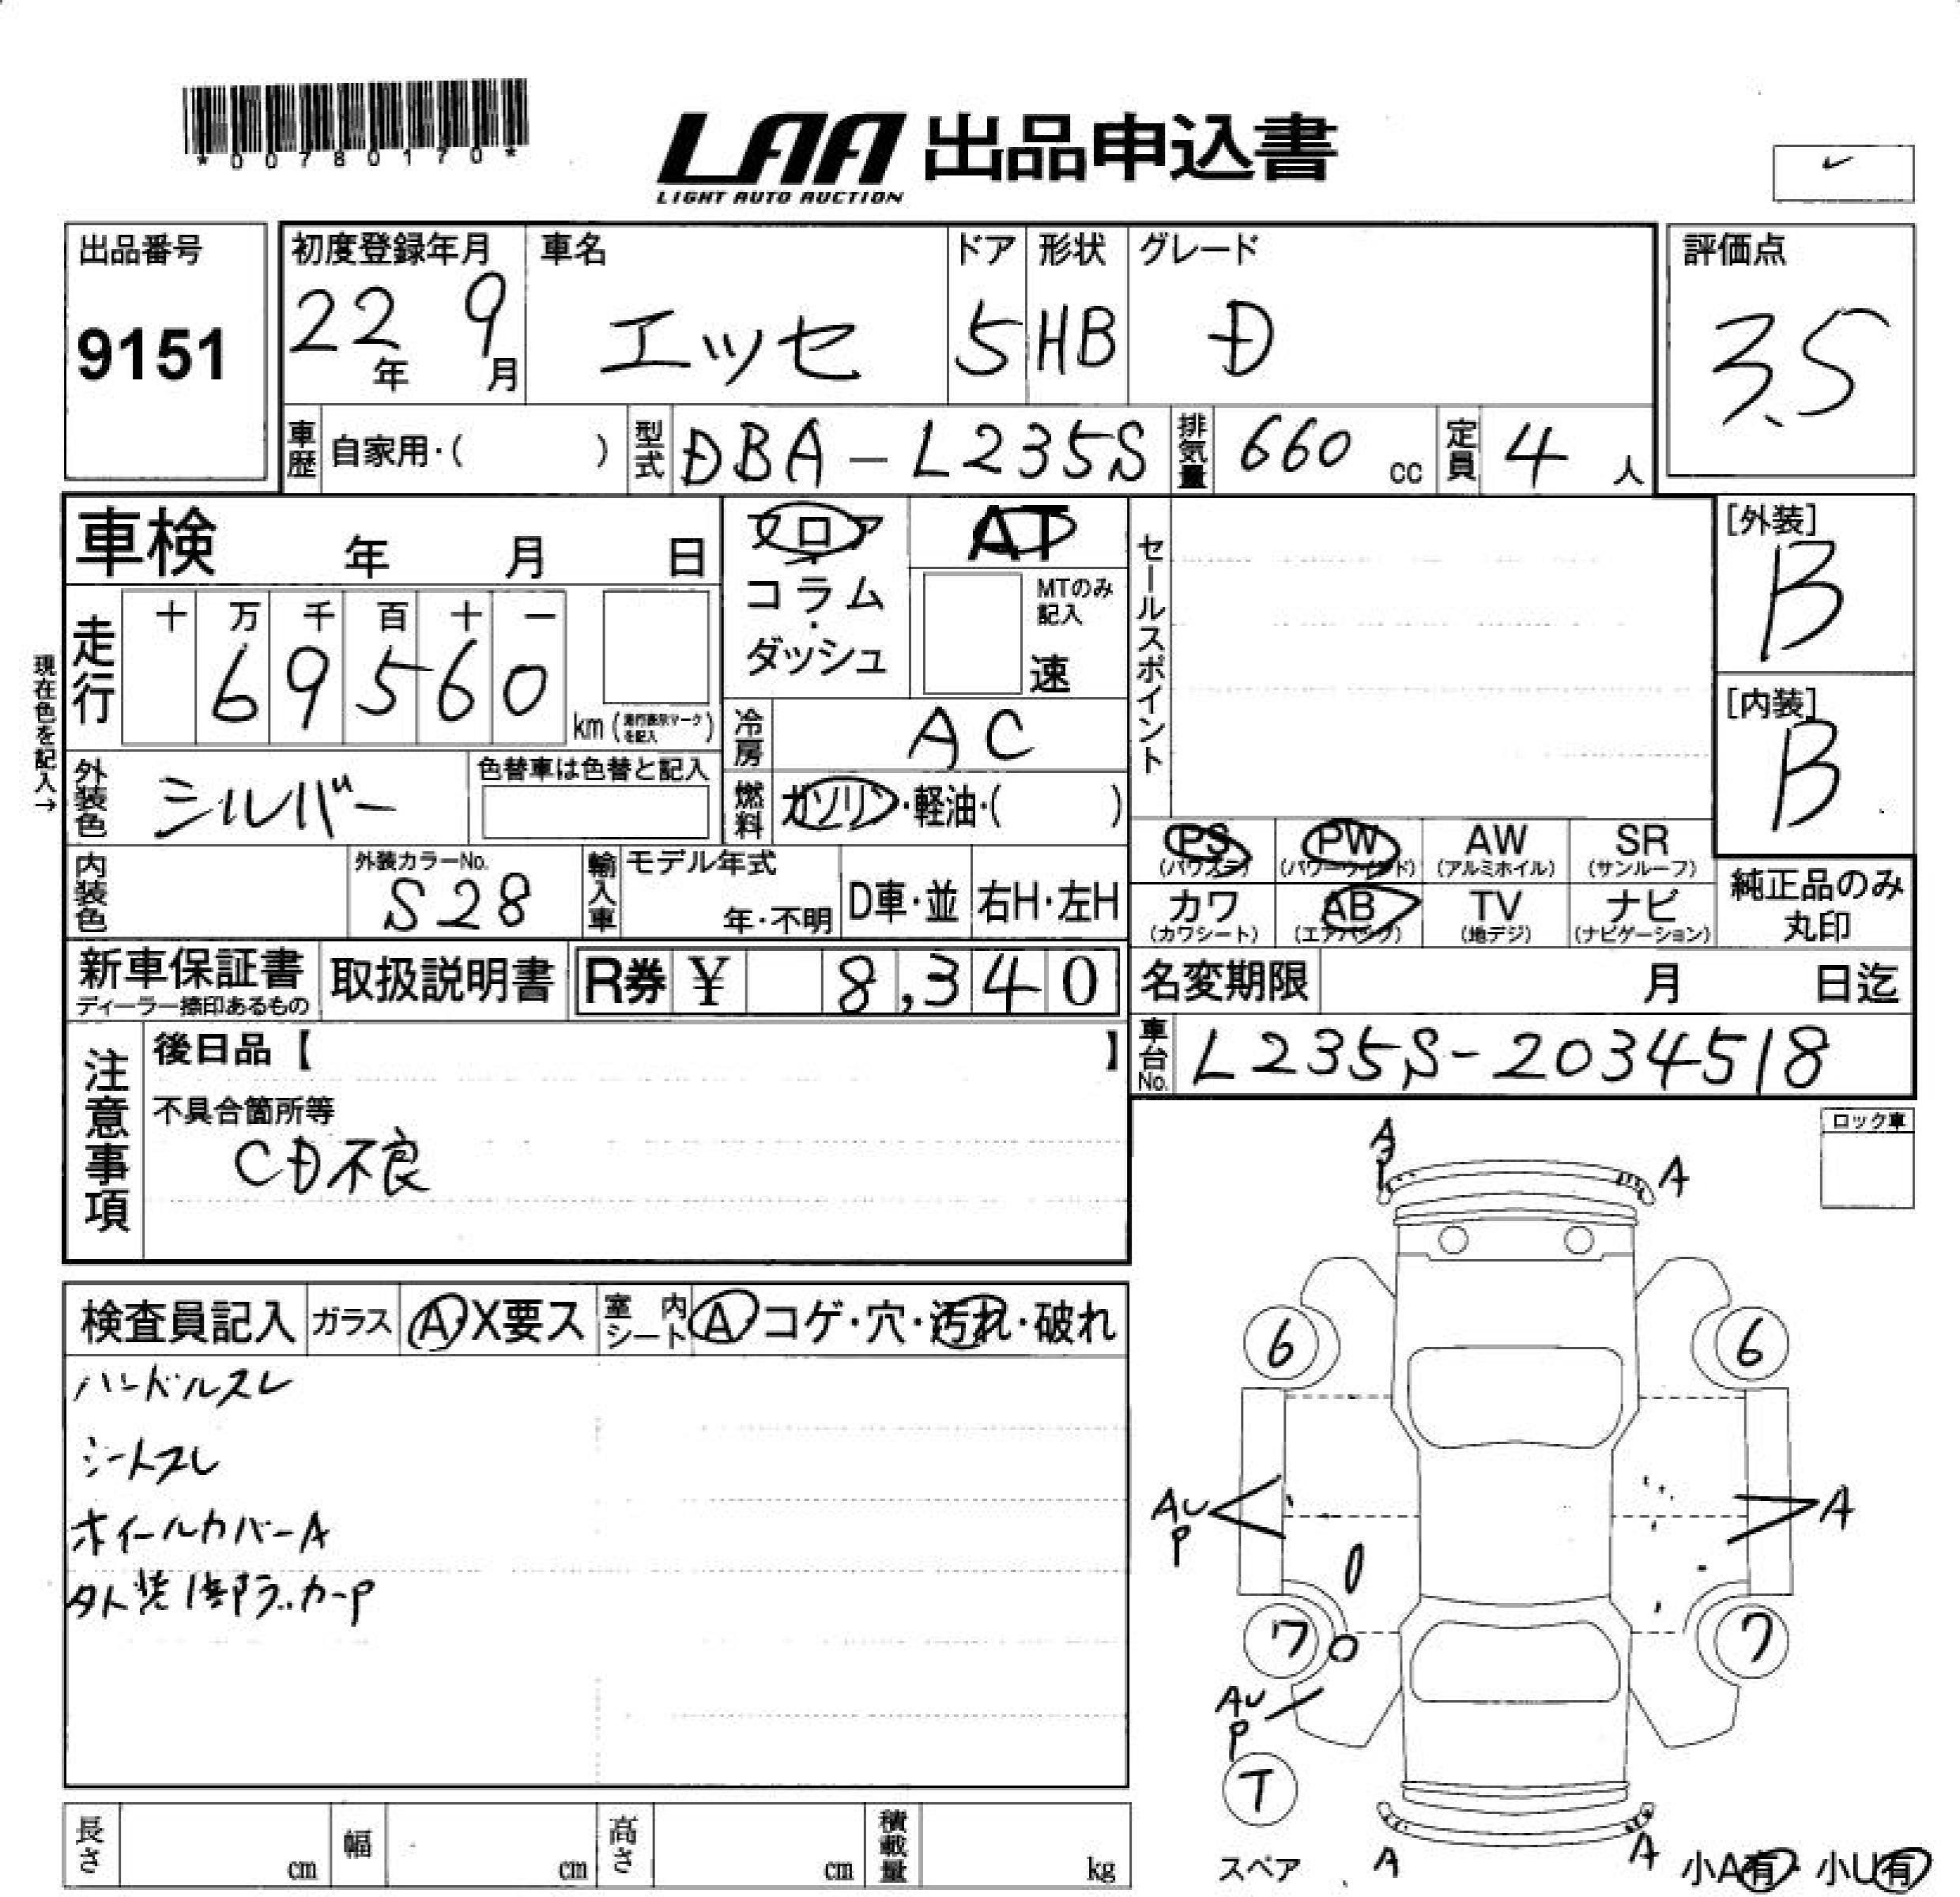 *00780170*
LAA 出品申込書
LIGHT AUTO AUCTION
出品番号
9151
初度登録年月
22年 9月
車名
エッセ
ドア
5
形状
HB
グレード
D
評価点
3.5
車歴 自家用・( )
型式 DBA-L235S
排気量 660 cc
定員 4 人
車検 年 月 日
フロア
コラム
・
ダッシュ
AT
MTのみ
記入
速
セールスポイント
[外装]
B
[内装]
B
現在色を記入→
走行
十 万 千 百 十 一
6 9 5 6 0
km (走行表示マークを記入)
冷房 AC
外装色 シルバー
色替車は色替と記入
燃料 ガソリン・軽油・( )
PS
(パワステ)
PW
(パワーウインド)
AW
(アルミホイル)
SR
(サンルーフ)
内装色
外装カラーNo.
S28
輸入車
モデル年式
年・不明
D車・並
右H・左H
カワ
(カワシート)
AB
(エアバッグ)
TV
(地デジ)
ナビ
(ナビゲーション)
純正品のみ
丸印
新車保証書
ディーラー捺印あるもの
取扱説明書
R券 ¥ 8,340
名変期限 月 日迄
車台No. L235S-2034518
注意事項
後日品【 】
不具合箇所等
CD不良
ロック車
A
P
A
検査員記入
ガラス A・X要ス
室内シート A・コゲ・穴・汚れ・破れ
ハンドルスレ
シートスレ
ホイールカバーA
外装1部ラッカーP
6
6
AU
P
A
7
7
AU
P
T
スペア
A
A
小A有・小U有
長さ cm
幅 cm
高さ cm
積載量 kg